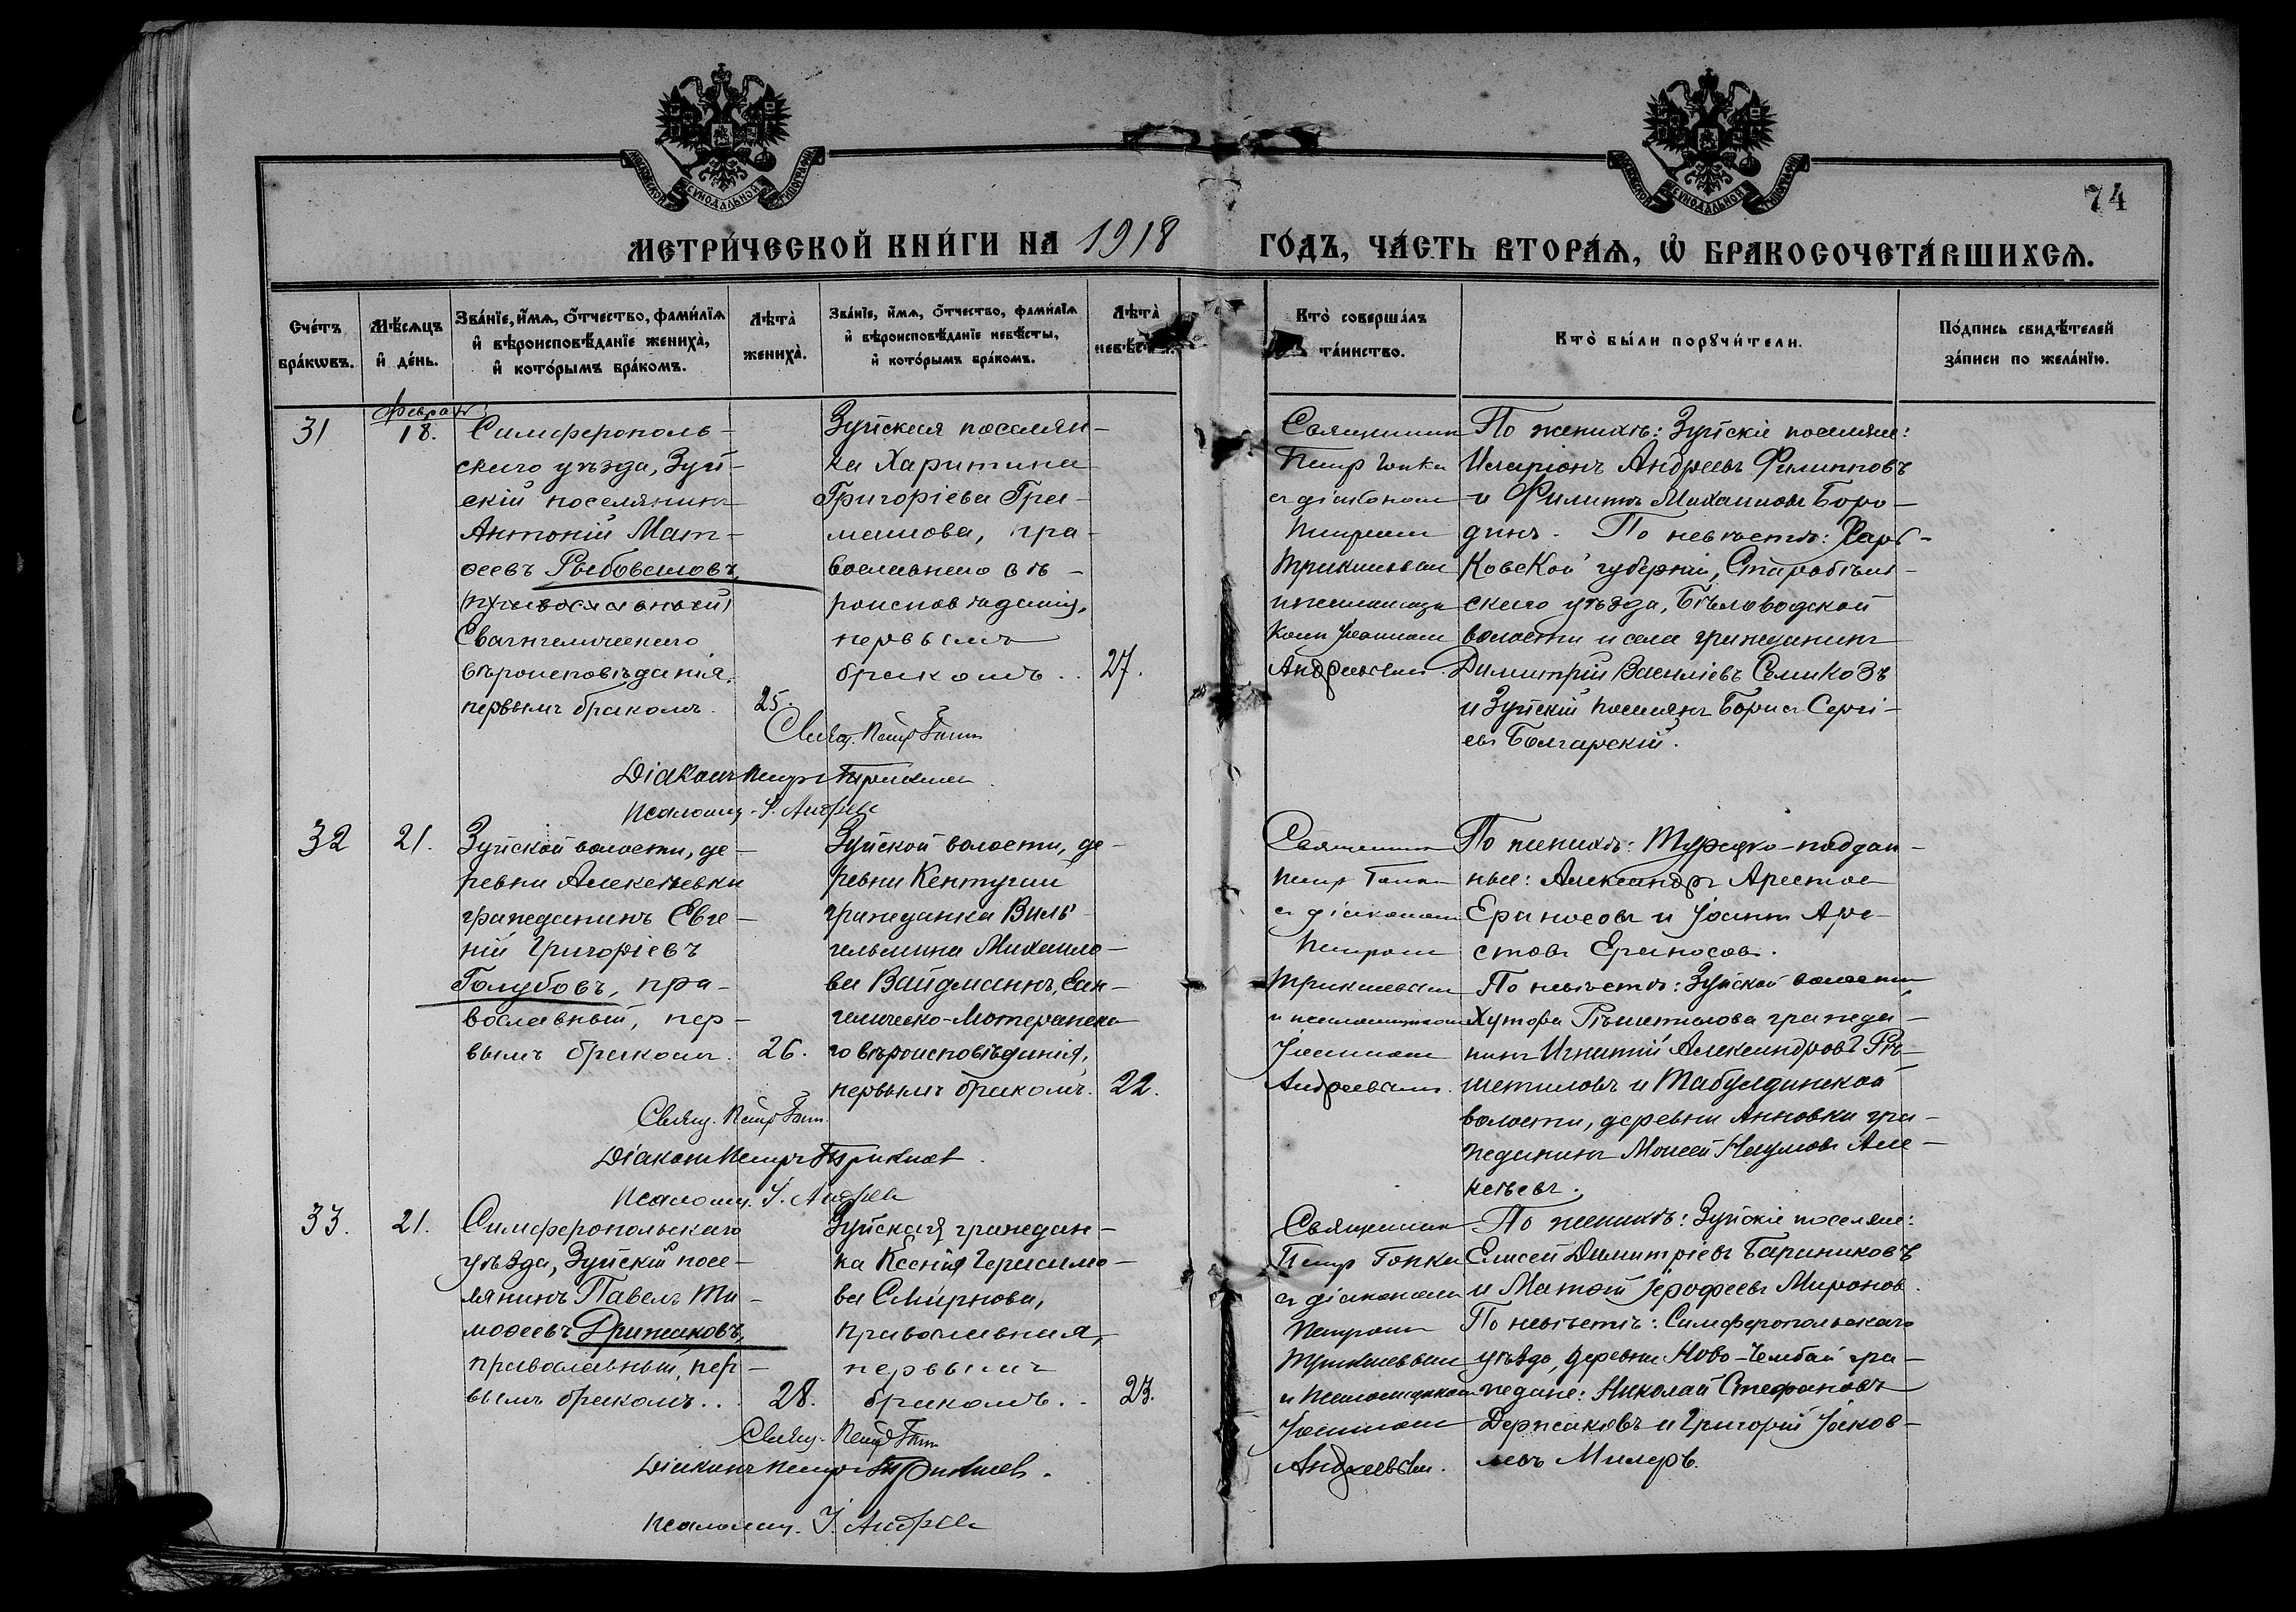 74
МЕТРИ́ЧЕСКОЙ КНИ́ГИ НА 1918 ГО́ДЪ, ЧА́СТЬ ВТОРА́Ѧ, Ѡ҆ БРАКОСОЧЕТА́ВШИХСѦ.
Сче́тъ бра́кѡвъ.
Мѣ́сѧцъ и҆ де́нь.
Зва́нїе, и҆́мѧ, о҆́тчество, фами́лїѧ
и҆ вѣроисповѣ́данїе жениха̀,
и҆ кото́рымъ бра́комъ.
Лѣта̀ жениха̀.
Зва́нїе, и҆́мѧ, о҆́тчество, фами́лїѧ
и҆ вѣроисповѣ́данїе невѣ́сты,
и҆ кото́рымъ бра́комъ.
Лѣта̀
Кто̀ соверша́лъ
та́инство.
Кто̀ бы́ли порꙋчи́тели.
По́дпись свидѣ́телей
за́писи по жела́нїю.
31
18.
Симферополь-
скаго уѣзда, Зуй-
скій поселянинъ
Антоній Мат-
ѳеевъ Рыбоваловъ,
(православный)
Евангелическаго
вѣроисповѣданія,
первымъ бракомъ.
25.
Зуйская поселян-
ка Харитина
Григоріева Гри-
православнаго вѣ-
роисповѣданія,
первымъ
бракомъ..
27.
Священникъ
Петръ
съ діакономъ
Петромъ
Андреевымъ.
По женихѣ: Зуйскіе поселяне:
Иларіонъ Андреевъ Филипповъ
и Филиппъ Михаиловъ Боро-
динъ. По невѣстѣ: Харь-
ковской губерніи, Старобѣль-
скаго уѣзда, Бѣловодской
волости и села гражданинъ
Димитрій Василіевъ Семикозъ
и Зуйскій поселянъ Борисъ Сергі-
евъ Болгарскій.
Свящ. Петръ
Діаконъ Петръ
Псаломщ. І. Андреев
32
21.
Зуйской волости, де-
ревни Алексѣевки
гражданинъ Евге-
ній Григоріевъ
Голубовъ, пра-
вославный, пер-
вымъ бракомъ.
26.
Зуйской волости, де-
ревни Кентугаи
гражданка Виль-
гельмина Михаило-
ва Вайдманнъ, Еван-
гелическо-Лютеранска-
го вѣроисповѣданія,
первымъ бракомъ.
22.
Священникъ
Петръ
съ діакономъ
Петромъ
и псаломщикомъ
Іоанномъ
Андреевымъ.
По женихѣ: Турецко-поддан-
ные: Александръ Арестов
и Іоаннъ Аре-
стовъ
По невѣстѣ: Зуйской волости
Хутора Рѣшетилова гражда-
нинъ Игнатій Александровъ Рѣ-
шетиловъ и Табулдинской
волости, деревни Анновки гра-
жданинъ Моисей Наумовъ Але-
ксѣевъ.
Свящ. Петръ
Діаконъ Петръ
Псаломщ. І. Андреев
33.
21.
Симферопольскаго
уѣзда, Зуйскій посе-
лянинъ Павелъ Ти-
моѳеевъ Дрижаковъ,
православный, пер-
вымъ бракомъ..
28.
Зуйская граждан-
ка Ксенія Герасимо-
ва Смирнова,
православная,
первымъ
бракомъ..
23.
Священникъ
Петръ
съ діакономъ
Петромъ
и псаломщикомъ
Іоанномъ
Андреевым.
По женихѣ: Зуйскіе поселяне:
Елисей Димитріевъ Баранниковъ
и Матѳій Іерофеевъ Миронов.
По невѣстѣ: Симферопольскаго
уѣзда, деревни Ново-Челебай гра-
ждане: Николай Стефановъ
Держаковъ и Григорій Іаков-
левъ Милеръ.
Свящ. Петръ
Діаконъ Петръ
Псаломщ. І. Андреев